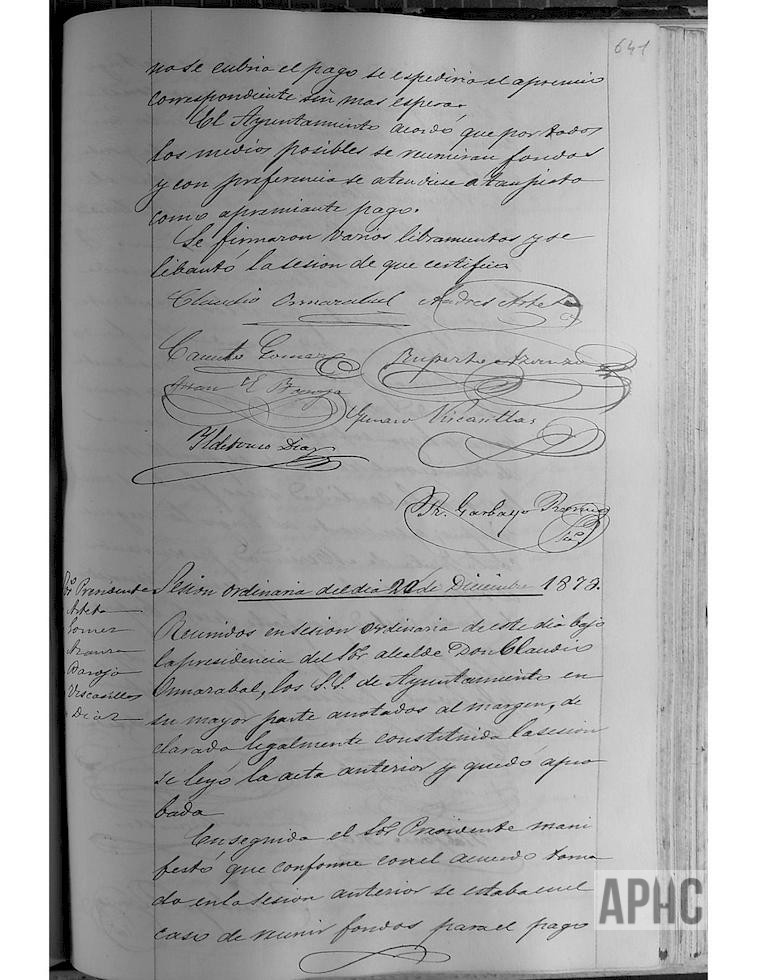 641
no se cubria el pago se espediria el apremio
correspondiente sin mas espera.
El Ayuntamiento acordó que por todos
los medios posibles se reunieran fondos
y con preferencia se atendiese a tan justo
como apremiante pago.
Se firmaron varios libramientos y se
libantó la sesion de que certifico
Claudio Onnarabal Andres Arteta
Canuto Gomez Ruperto Azanza
Juan E Baroja
Genaro Viscasillas
Yldefonso Diaz
Fr. Garbayo
Srio
Sor Presidente
Arteta
Gomez
Azanza
Baroja
Viscasillas
Diaz
Sesion ordinaria del dia 22 de Diciembre 1878.
Reunidos en sesion ordinaria de este dia bajo
la presidencia del Sor alcalde Don Claudio
Onnarabal, los S.S. de Ayuntamiento en
su mayor parte anotados al margen, de
clarada legalmente constituida la sesion
se leyó la acta anterior y quedó apro
bada
En seguida el Sor Presidente mani
festó que conforme con el acuerdo toma
do en la sesion anterior se estaba en el
caso de reunir fondos para el pago
APHC